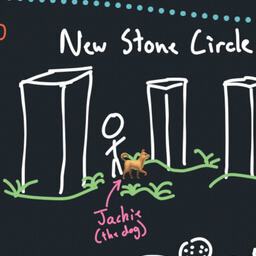 New Stone Circle
Jachie
(the dog)